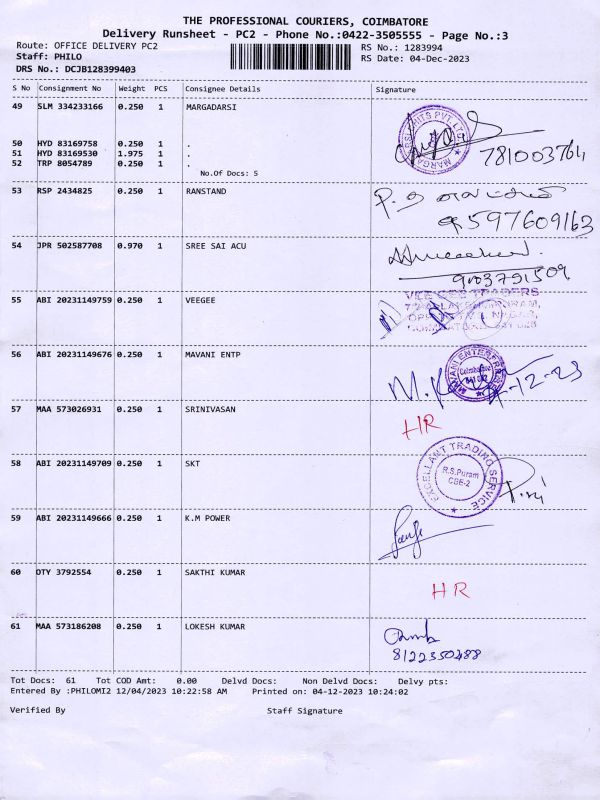 THE PROFESSIONAL COURIERS, COIMBATORE
Delivery Runsheet - PC2 - Phone No.:0422-3505555 - Page No.:3
Route: OFFICE DELIVERY PC2 RS No.: 1283994
Staff: PHILO RS Date: 04-Dec-2023
DRS No.: DCJB128399403
S No Consignment No Weight PCS Consignee Details Signature
49 SLM 334233166 0.250 1 MARGADARSI
50 HYD 83169758 0.250 1 .
51 HYD 83169530 1.975 1 .
52 TRP 8054789 0.250 1 .
No.Of Docs: 5
781003764
53 RSP 2434825 0.250 1 RANSTAND
9597609163
54 JPR 502587708 0.970 1 SREE SAI ACU
9003791509
55 ABI 20231149759 0.250 1 VEEGEE
VEE GEE TRADERS
56 ABI 20231149676 0.250 1 MAVANI ENTP
MAVANI ENTERPRISES
Coimbatore
4-12-23
57 MAA 573026931 0.250 1 SRINIVASAN
HR
58 ABI 20231149709 0.250 1 SKT
EXCELLANT TRADING SERVICE
R.S.Puram
CBE-2
59 ABI 20231149666 0.250 1 K.M POWER
60 OTY 3792554 0.250 1 SAKTHI KUMAR
HR
61 MAA 573186208 0.250 1 LOKESH KUMAR
8122350488
Tot Docs: 61 Tot COD Amt: 0.00 Delvd Docs: Non Delvd Docs: Delvy pts:
Entered By :PHILOMI2 12/04/2023 10:22:58 AM Printed on: 04-12-2023 10:24:02
Verified By Staff Signature